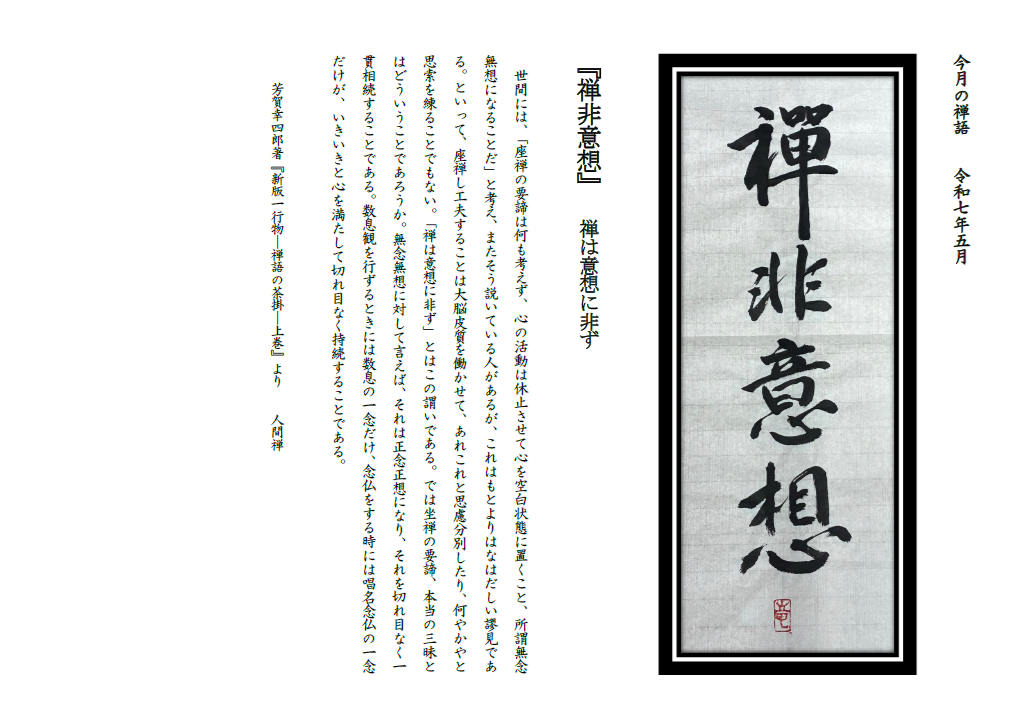 今月の禅語　令和七年五月
禪非意想
『禅非意想』　禅は意想に非ず
世間には、「座禅の要諦は何も考えず、心の活動は休止させて心を空白状態に置くこと、所謂無念
無想になることだ」と考え、またそう説いている人があるが、これはもとよりはなはだしい謬見であ
る。といって、座禅し工夫することは大脳皮質を働かせて、あれこれと思慮分別したり、何やかやと
思索を練ることでもない。「禅は意想に非ず」とはこの謂いである。では坐禅の要諦、本当の三昧と
はどういうことであろうか。無念無想に対して言えば、それは正念正想になり、それを切れ目なく一
貫相続することである。数息観を行ずるときには数息の一念だけ、念仏をする時には唱名念仏の一念
だけが、いきいきと心を満たして切れ目なく持続することである。
芳賀幸四郎著『新版一行物―禅語の茶掛―上巻』より　人間禅